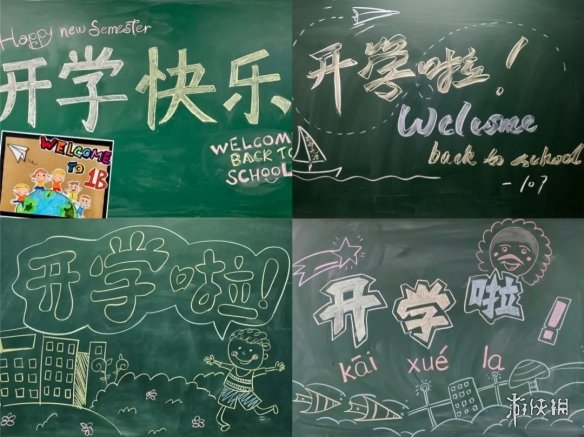 Happy new Semester
开学快乐
WELCOME
BACK TO
SCHOOL
WELCOME
TO
1B
开学啦!
Welcome
back to school
-107
开学啦!
开学啦!
kāi xué la
游侠网